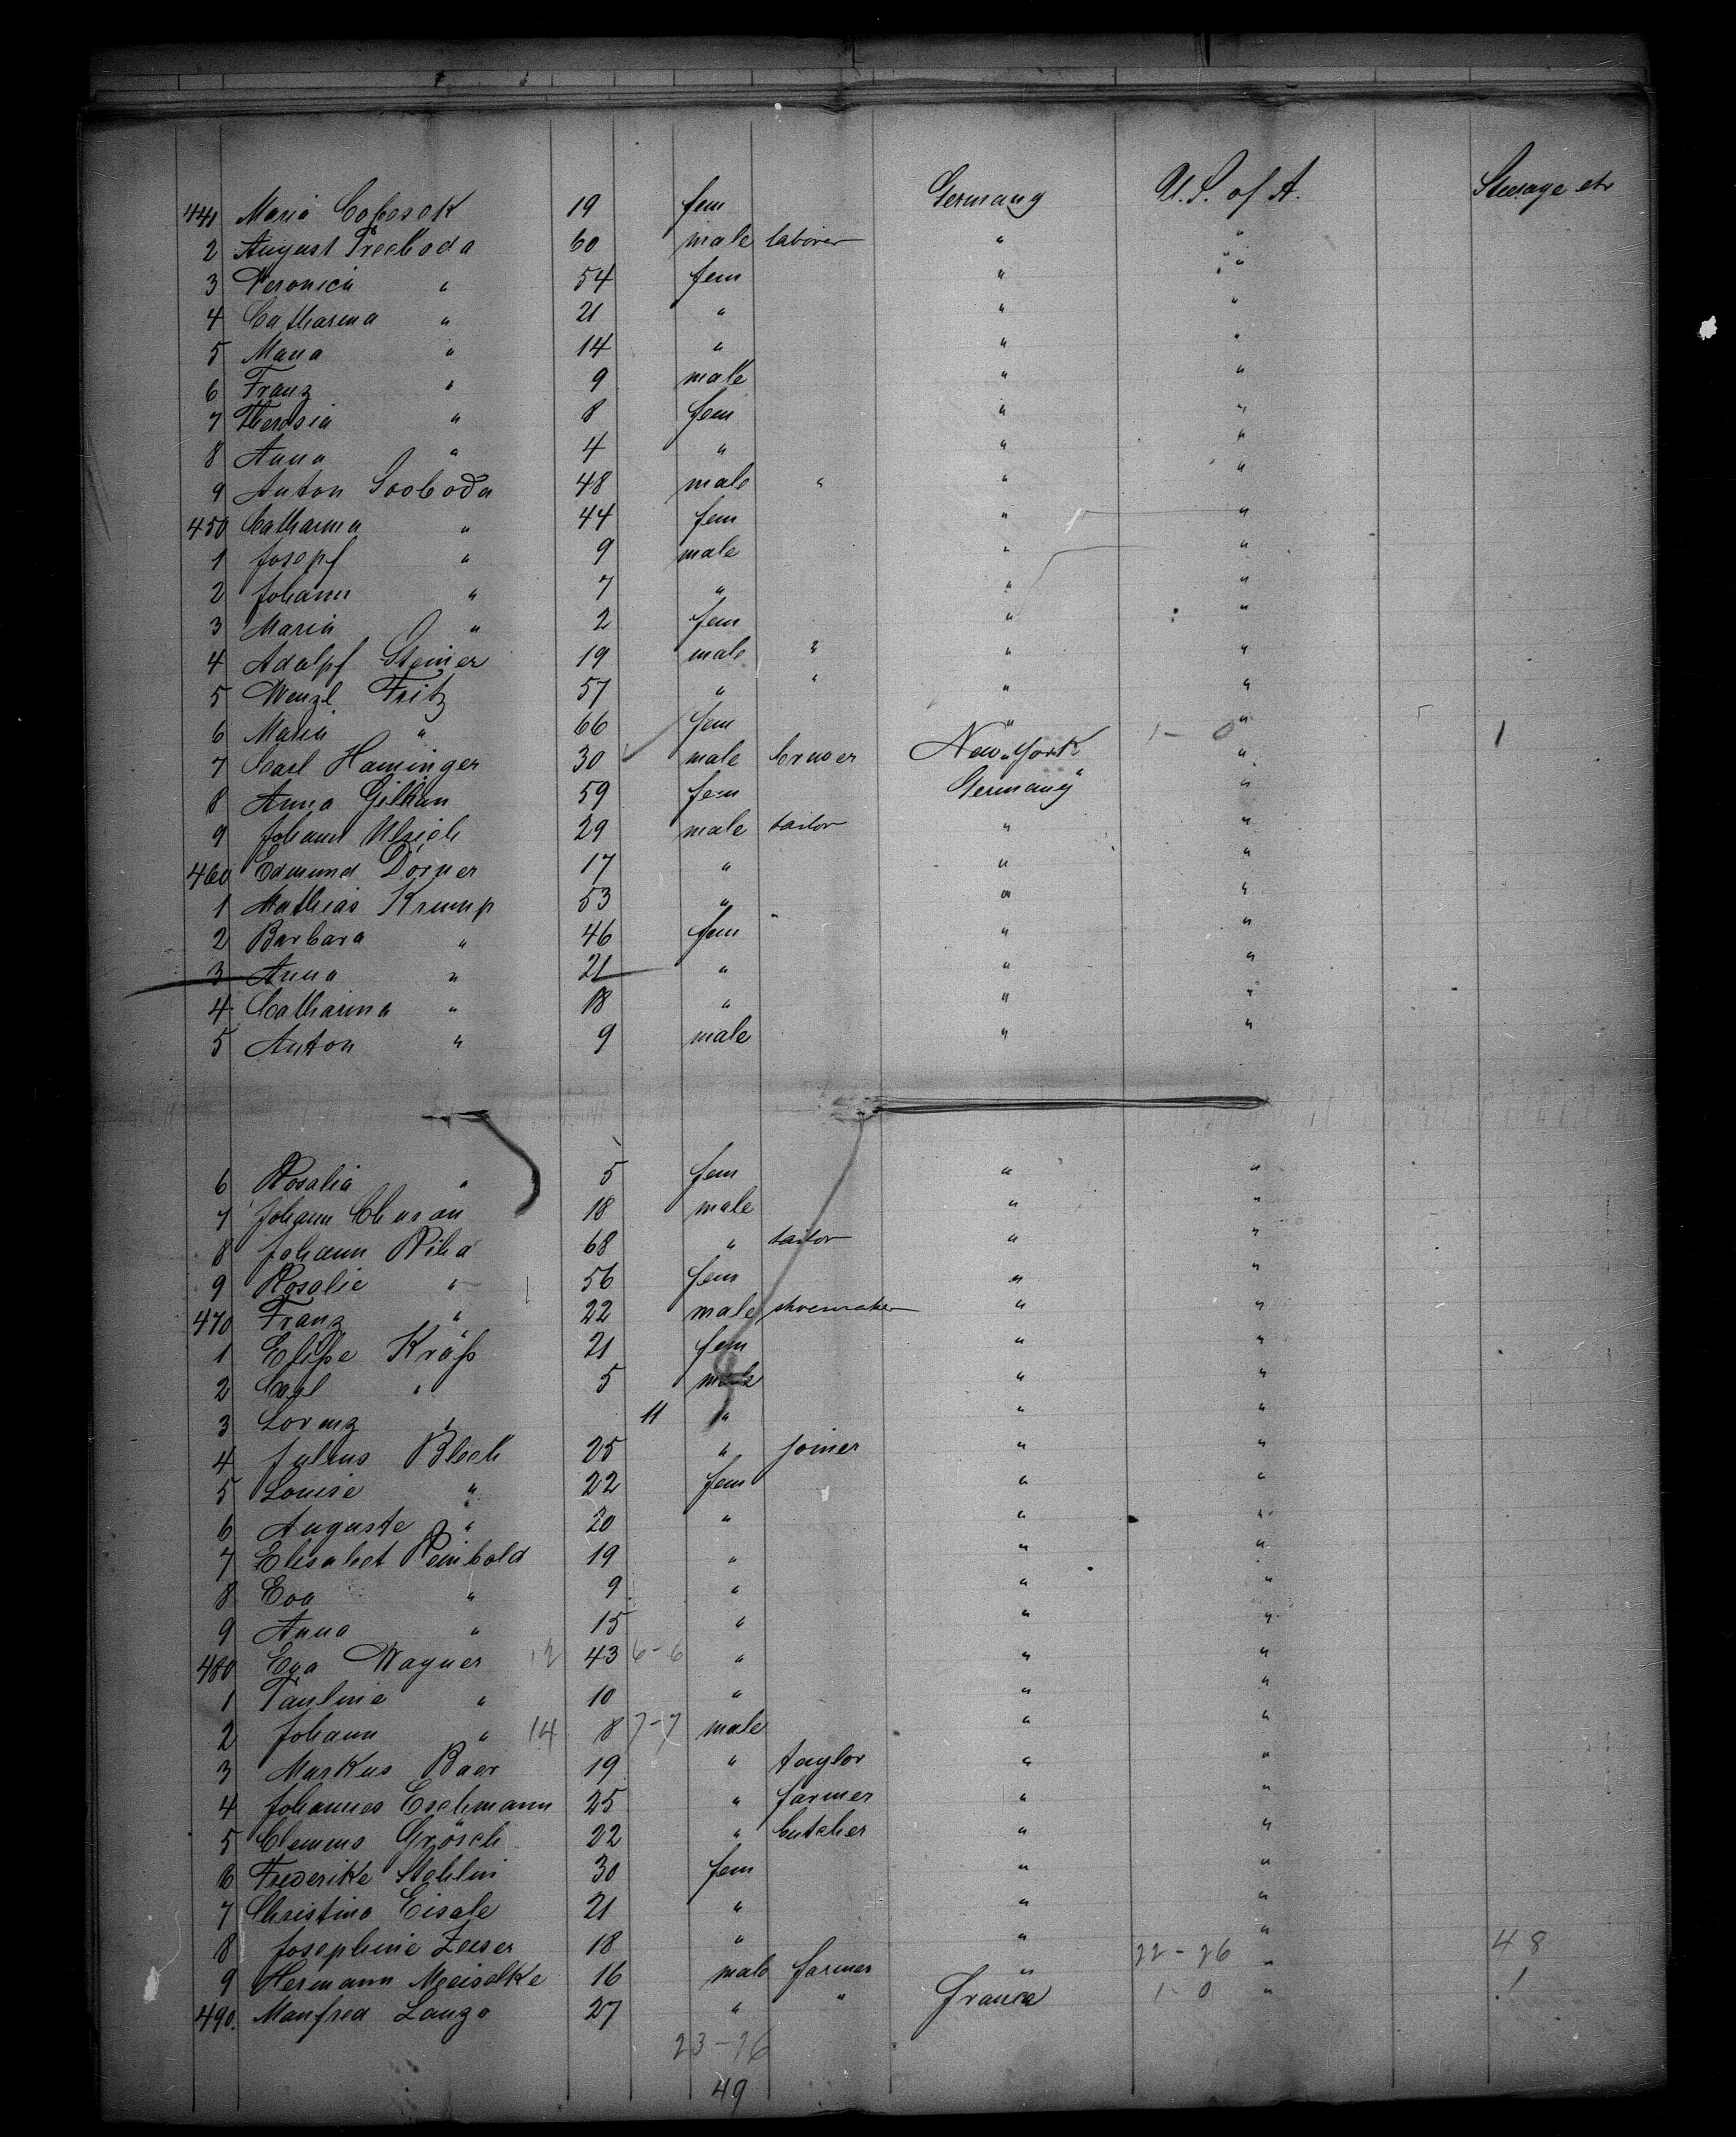 441 Maria Cobosek 19 fem Germany U.S. of A. Steerage etr
2 August Treeboda 60 male laborer " "
3 Veronica " 54 fem " "
4 Catharina " 21 " " "
5 Maria " 14 " " "
6 Franz " 9 male " "
7 Theresia " 8 fem " "
8 Anna " 4 " " "
9 Anton Sooboda 48 male " " "
450 Catharina " 44 fem " "
1 Josepf " 9 male " "
2 Johann " 7 " " "
3 Maria " 2 fem " "
4 Adolpf Steiner 19 male " " "
5 Wenzl Fritz 57 " " " "
6 Maria " 66 fem " 1-0 "
7 Carl Haminger 30 male Bruver New York " 1
8 Anna Gilkan 59 fem Germany "
9 Johann Ulrich 29 male tailor " "
460 Edmund Dörner 17 " " "
1 Mathias Krump 53 " " "
2 Barbara " 46 fem " "
3 Anna " 21 " " "
4 Catharina " 18 " " "
5 Anton " 9 male " "
6 Rosalia " 5 fem " "
7 Johann Chason 18 male " "
8 Johann Riha 68 " tailor " "
9 Rosalie " 56 fem " "
470 Franz " 22 male shoemaker " "
1 Elise Kräß 21 fem " "
2 Carl " 5 male " "
3 Lorenz " 11 " " "
4 Julius Blech 25 " joiner " "
5 Louise " 22 fem " "
6 Auguste " 20 " " "
7 Elisabet Reinbold 19 " " "
8 Eva " 9 " " "
9 Anna " 15 " " "
480 Eva Wagner 12 43 6-6 " " "
1 Pauline " 10 " " "
2 Johann " 14 8 7-7 male " "
3 Markus Baer 19 " taylor " "
4 Johannes Eschmann 25 " farmer " "
5 Clemens Grösch 22 " butcher " "
6 Frederike Stehlin 30 fem " "
7 Christina Eisele 21 " " "
8 Josephine Zeeser 18 " " "
9 Hermann Meiselke 16 male farmer " 22-26 " 48
490. Manfred Lanzo 27 " " France 1-0 " 1
23-26
49